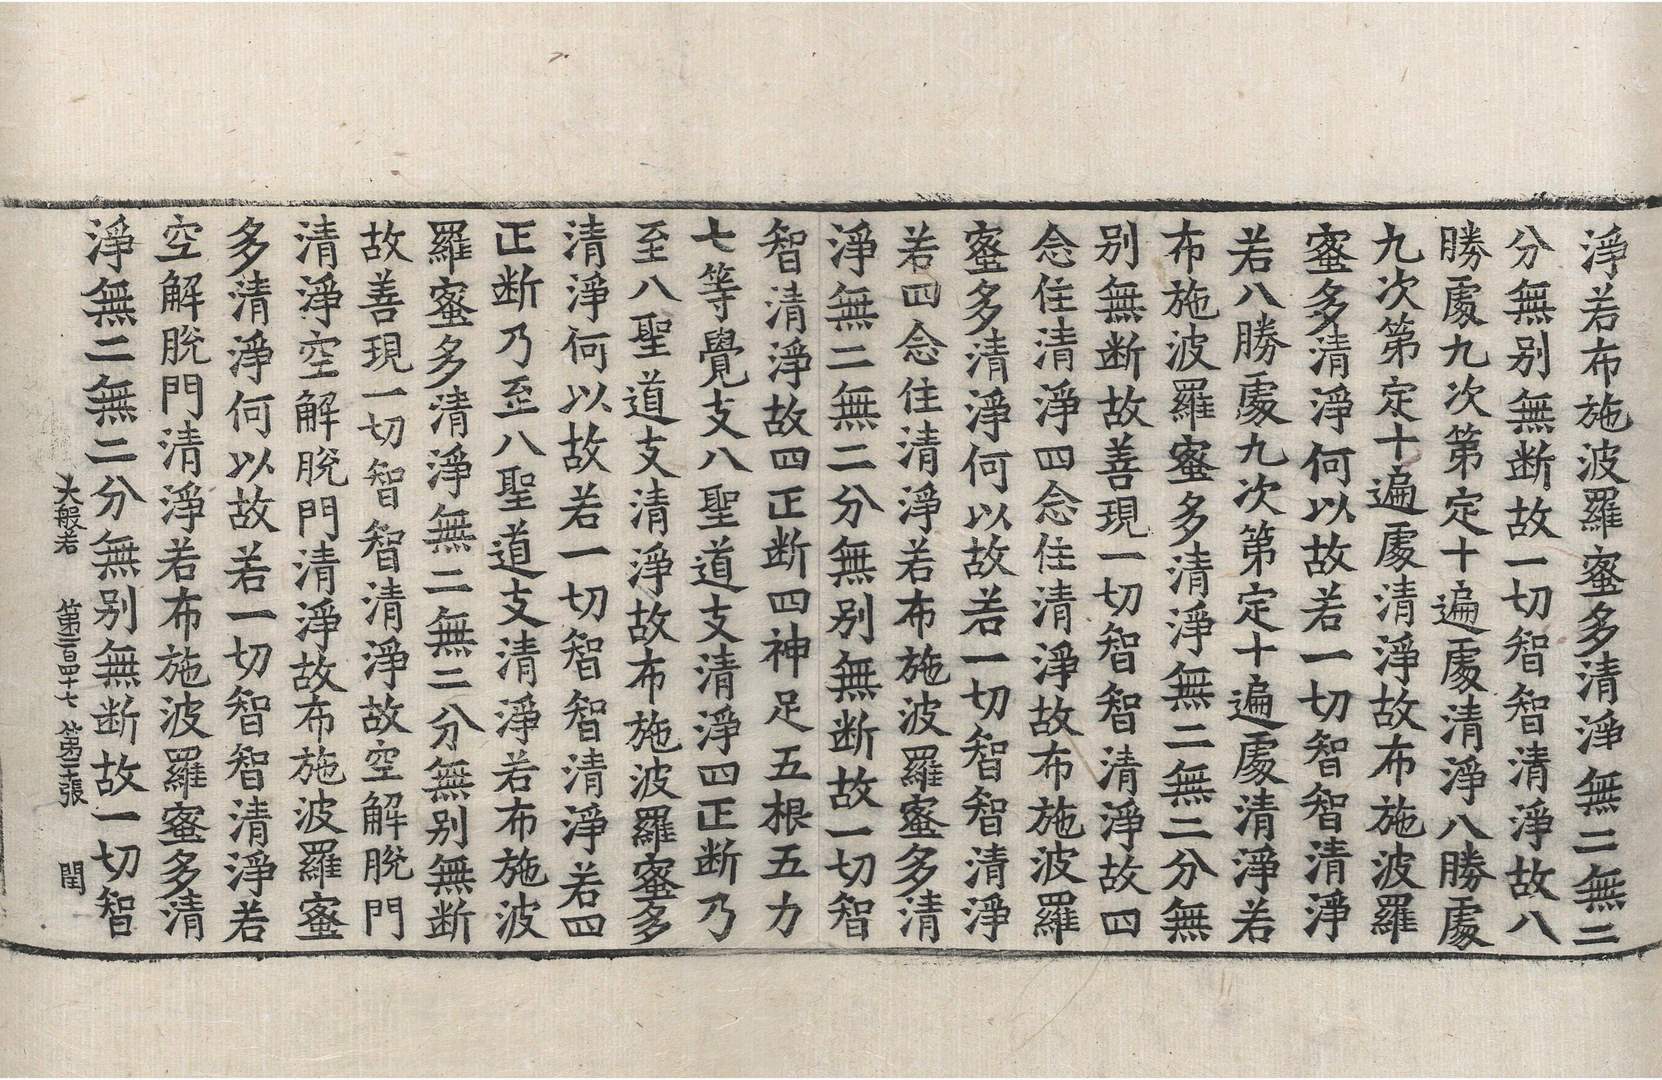 淨若布施波羅蜜多清淨無二無二
分無别無断故一切智智清淨故八
勝處九次第定十遍處清淨八勝處
九次第定十遍處清淨故布施波羅
蜜多清淨何以故若一切智智清淨
若八勝處九次第定十遍處清淨若
布施波羅蜜多清淨無二無二分無
别無断故善現一切智智清淨故四
念住清淨四念住清淨故布施波羅
蜜多清淨何以故若一切智智清淨
若四念住清淨若布施波羅蜜多清
淨無二無二分無别無断故一切智
智清淨故四正断四神足五根五力
七等覺支八聖道支清淨四正断乃
至八聖道支清淨故布施波羅蜜多
清淨何以故若一切智智清淨若四
正断乃至八聖道支清淨若布施波
羅蜜多清淨無二無二分無别無断
故善現一切智智清淨故空解脫門
清淨空解脫門清淨故布施波羅蜜
多清淨何以故若一切智智清淨若
空解脫門清淨若布施波羅蜜多清
淨無二無二分無别無断故一切智
大般若 第二百四十七 第三張 閏